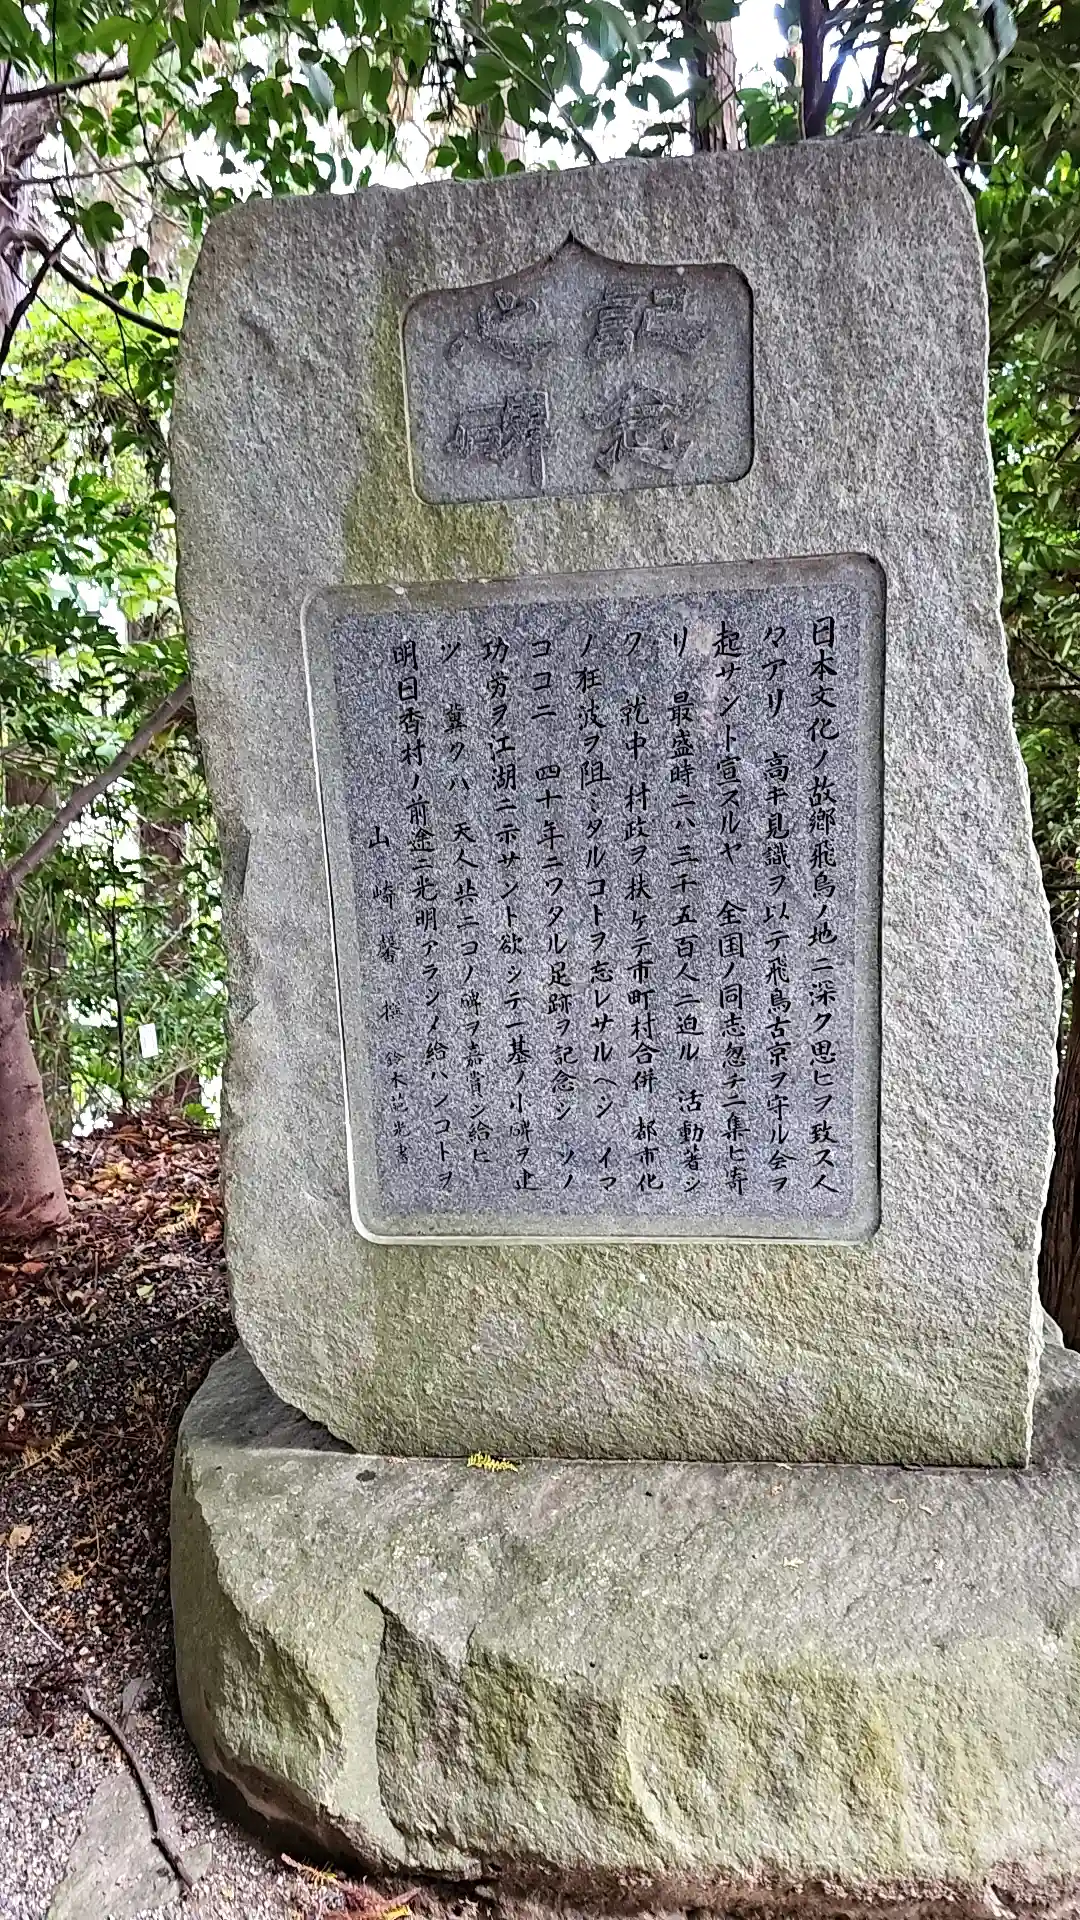 記念
之碑
日本文化ノ故郷飛鳥ノ地ニ深ク思ヒヲ致ス人
々アリ 高キ見識ヲ以テ飛鳥古京ヲ守ル会ヲ
起サント宣スルヤ 全国ノ同志忽チニ集ヒ寄
リ 最盛時ニハ三千五百人ニ迫ル 活動著シ
ク 就中 村政ヲ扶ケテ市町村合併 都市化
ノ狂波ヲ阻ミタルコトヲ忘レサルヘシ イマ
ココニ 四十年ニワタル足跡ヲ記念シ ソノ
功労ヲ江湖ニ示サント欲シテ一基ノ小碑ヲ止
ツ 冀クハ 天人共ニコノ碑ヲ嘉賞シ給ヒ
明日香村ノ前途ニ光明アラシメ給ハンコトヲ
山崎馨撰 鈴木葩光書